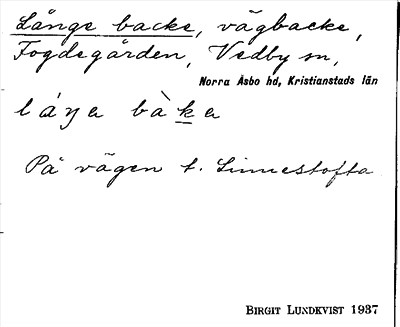 Långe backe, vägbacke,
Fogdegården, Vedby sn,
Norra Åsbo hd, Kristianstads län
låŋa bàka
På vägen t. Linnestofta
BIRGIT LUNDKVIST 1937